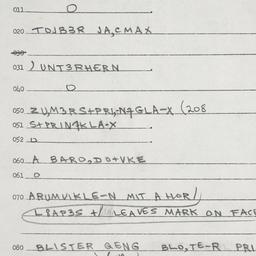 011 O
020 TOJB3R JA,CMAX
030
031 ) UNT3RHERN
040 O
050 ZU,M3RS+PRI,-N4GLA-X (208
051 S+PRIN4KLA-X
052 O
060 A BARO,DO+VKE
061 O
070 ARUMVIKLE-N MIT A HOR/
L8AP3S +/ LEAVES MARK ON FACE
080 BLISTER GENG BLO,TE-R PRI